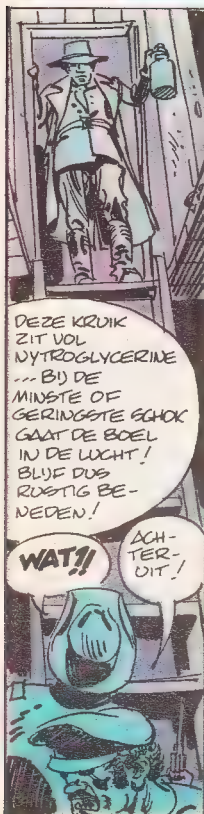 DEZE KRUIK
ZIT VOL
NYTROGLYCERINE
... BIJ DE
MINSTE OF
GERINGSTE SCHOK
GAAT DE BOEL
IN DE LUCHT!
BLIJF DUS
RUSTIG BE-
NEDEN!
WAT?!
ACH-
TER-
UIT!